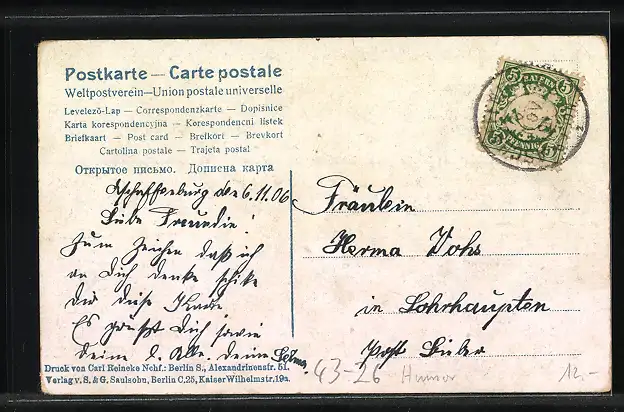 Postkarte — Carte postale
Weltpostverein—Union postale universelle
Levelezö-Lap — Correspondenzkarte — Dopisnice
Karta korespondencyjna — Korespondencni listek
Briefkaart — Post card — Brefkort — Brevkort
Cartolina postale — Trajeta postal
Открытое письмо. Дописна карта
5 BAYERN 5
5 PFENNIG 5
Aschaffenburg den 6.11.06
Liebe Freundin!
Zum Zeichen daß ich
an Dich denke schicke
Dir diese Karte
Es grüßt Dich sowie
deine l. Alle. Deine Selma
Fräulein
Herma Vohs
in Lohrhaupten
Post Bieber
Druck von Carl Reineke Nchf.: Berlin S., Alexandrinenstr. 51.
Verlag v. S. & G. Saulsohn, Berlin C.25, Kaiser Wilhelmstr. 19a.
43-26 Humor
12,-